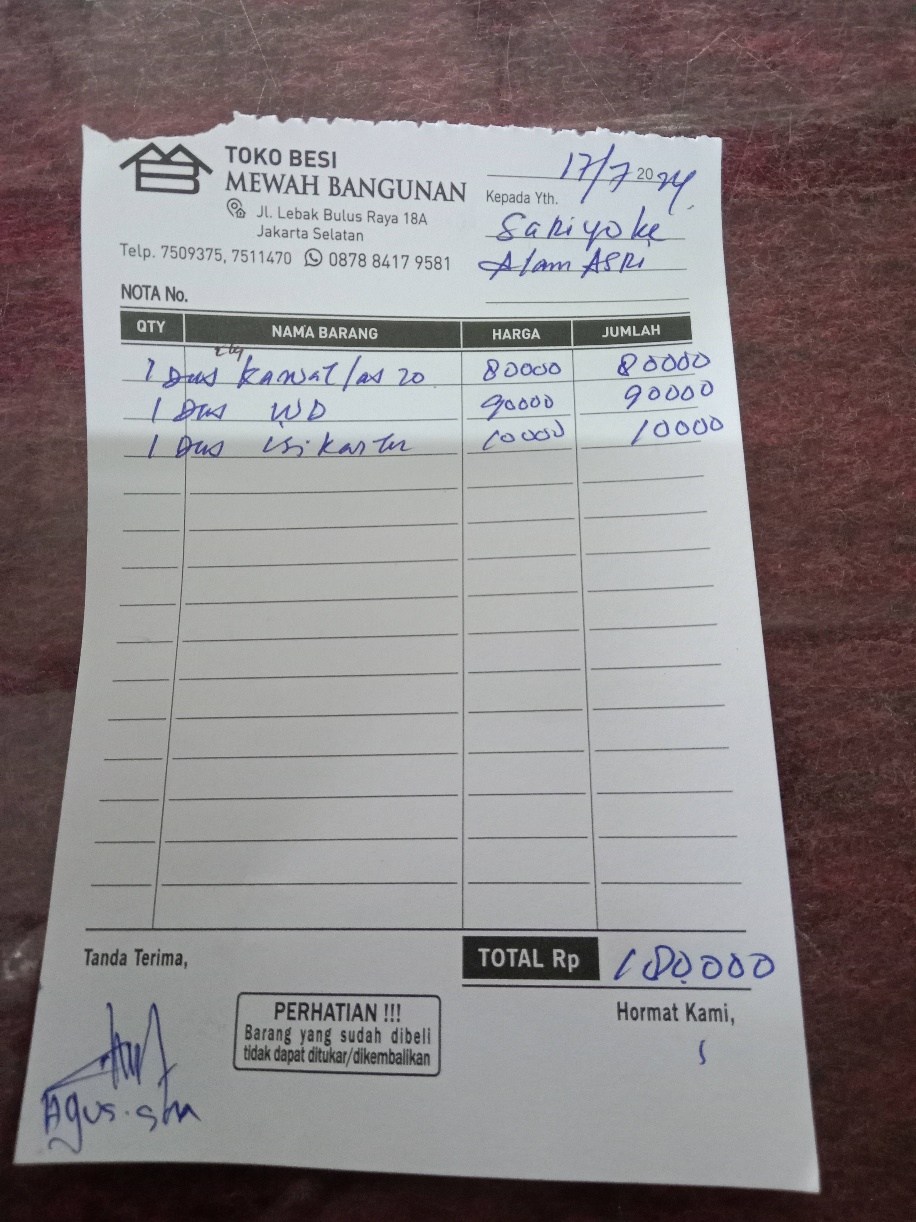 TOKO BESI
MEWAH BANGUNAN
Jl. Lebak Bulus Raya 18A
Jakarta Selatan
Telp. 7509375, 7511470 0878 8417 9581
17/7 2024
Kepada Yth.
Sariyo ke
Alam ASRI
NOTA No.
QTY NAMA BARANG HARGA JUMLAH
1 Dus kawat las 20 80000 80000
1 Dus WD 90000 90000
1 Dus isi 10000 10000
TOTAL Rp 180.000
Tanda Terima,
Hormat Kami,
PERHATIAN !!!
Barang yang sudah dibeli
tidak dapat ditukar/dikembalikan
Agus